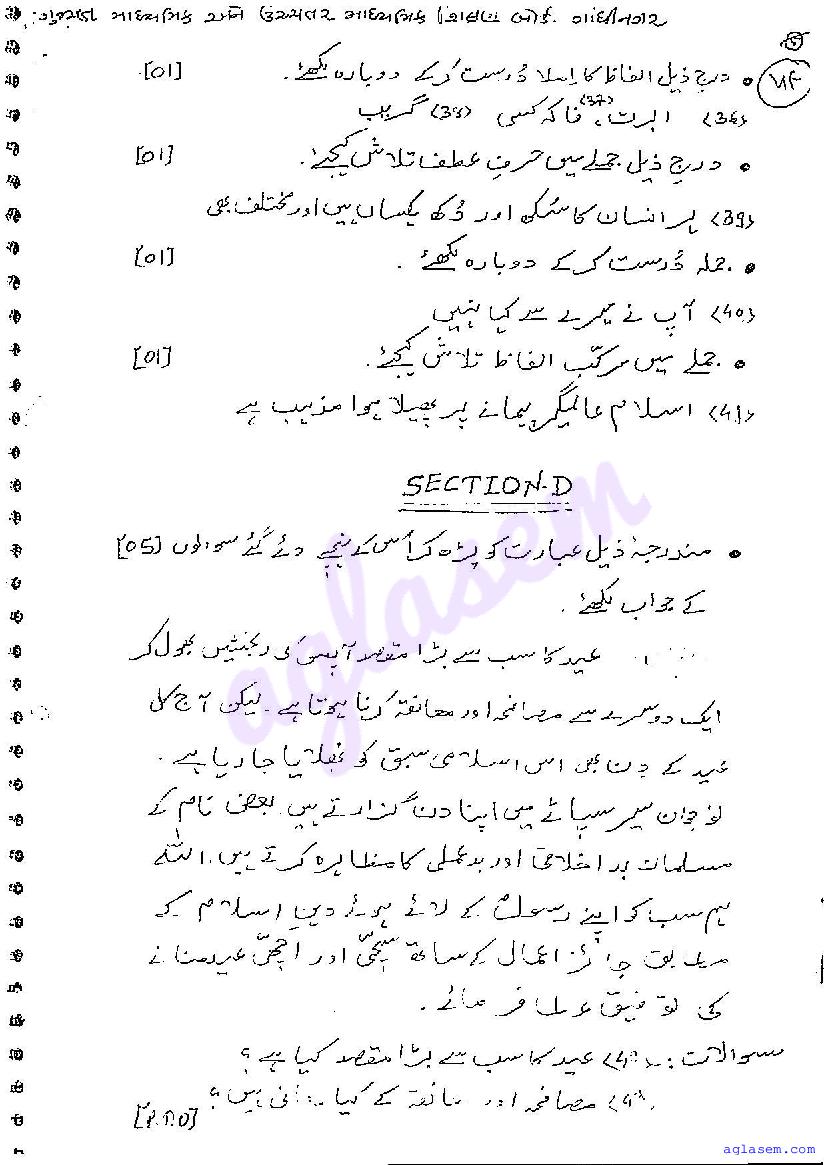 ગુજરાત માધ્યમિક અને ઉચ્ચતર માધ્યમિક શિક્ષણ બોર્ડ, ગાંધીનગર
• درج ذیل الفاظ کا اِملا دُرست کر کے دوبارہ لکھئے۔ [01]
(36) ابرت، (37) فاکہ کسی (38) گریب
• درجِ ذیل جملے میں حرفِ عطف تلاش کیجئے۔ [01]
(39) ہر انسان کا سُکھ اور دُکھ یکساں ہیں اور مختلف بھی
• جملہ دُرست کر کے دوبارہ لکھئے۔ [01]
(40) آپ نے میرے سے کہا نہیں
• جملے میں مرکّب الفاظ تلاش کیجئے۔ [01]
(41) اسلام عالمگیر پیمانے پر پھیلا ہوا مذہب ہے
SECTION-D
• مندرجۂ ذیل عبارت کو پڑھ کر اُس کے نیچے دئے گئے سوالوں [05]
کے جواب لکھئے۔
عید کا سب سے بڑا مقصد آپس کی رنجشیں بھول کر
ایک دوسرے سے مصافحہ اور معانقہ کرنا ہوتا ہے۔ لیکن آج کل
عید کے دن بھی اس اسلامی سبق کو بُھلایا جا رہا ہے۔
نوجوان سیر سپاٹے میں اپنا دن گزارتے ہیں۔ بعض نام کے
مسلمان بد اخلاقی اور بدعملی کا مظاہرہ کرتے ہیں۔ اللہ
ہم سب کو اپنے رسولؐ کے لائے ہوئے دینِ اسلام کے
مطابق جائز اعمال کے ساتھ سچّی اور اچھّی عید منانے
کی توفیق عطا فرمائے۔
سوالات :- عید کا سب سے بڑا مقصد کیا ہے؟
مصافحہ اور معانقہ کے کیا معانی ہیں؟
[P.T.O]
aglasem
aglasem.com